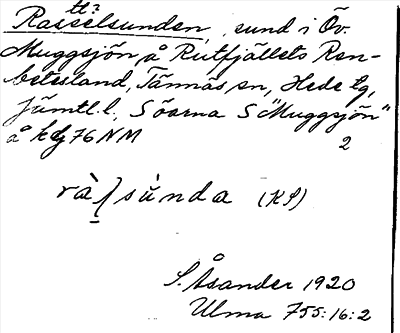 tl?
Rasselsunden, sund i Öv.
Muggsjön å Rutfjällets Ren-
betesland, Tännäs sn, Hede tg,
Jämtl.l. S öarna S "Muggsjön"
å kbl 76 NM 2
(KS)
S. Åsander 1920
Ulma 755:16:2